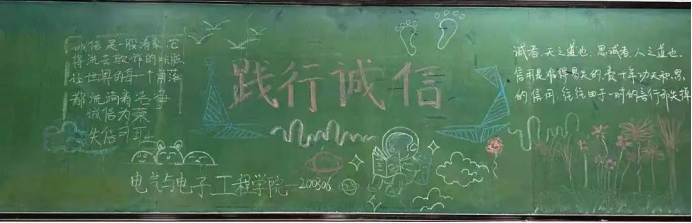 诚信是一股清泉,它
将洗去欺诈的肮脏,
让世界的每一个角落
都流淌着洁净
诚信为荣
失信可耻
践行诚信
诚者,天之道也,思诚者,人之道也.
信用是难得易失的,费十年功夫积累
的信用,往往由于一时的言行而失掉
电气与电子工程学院—200306